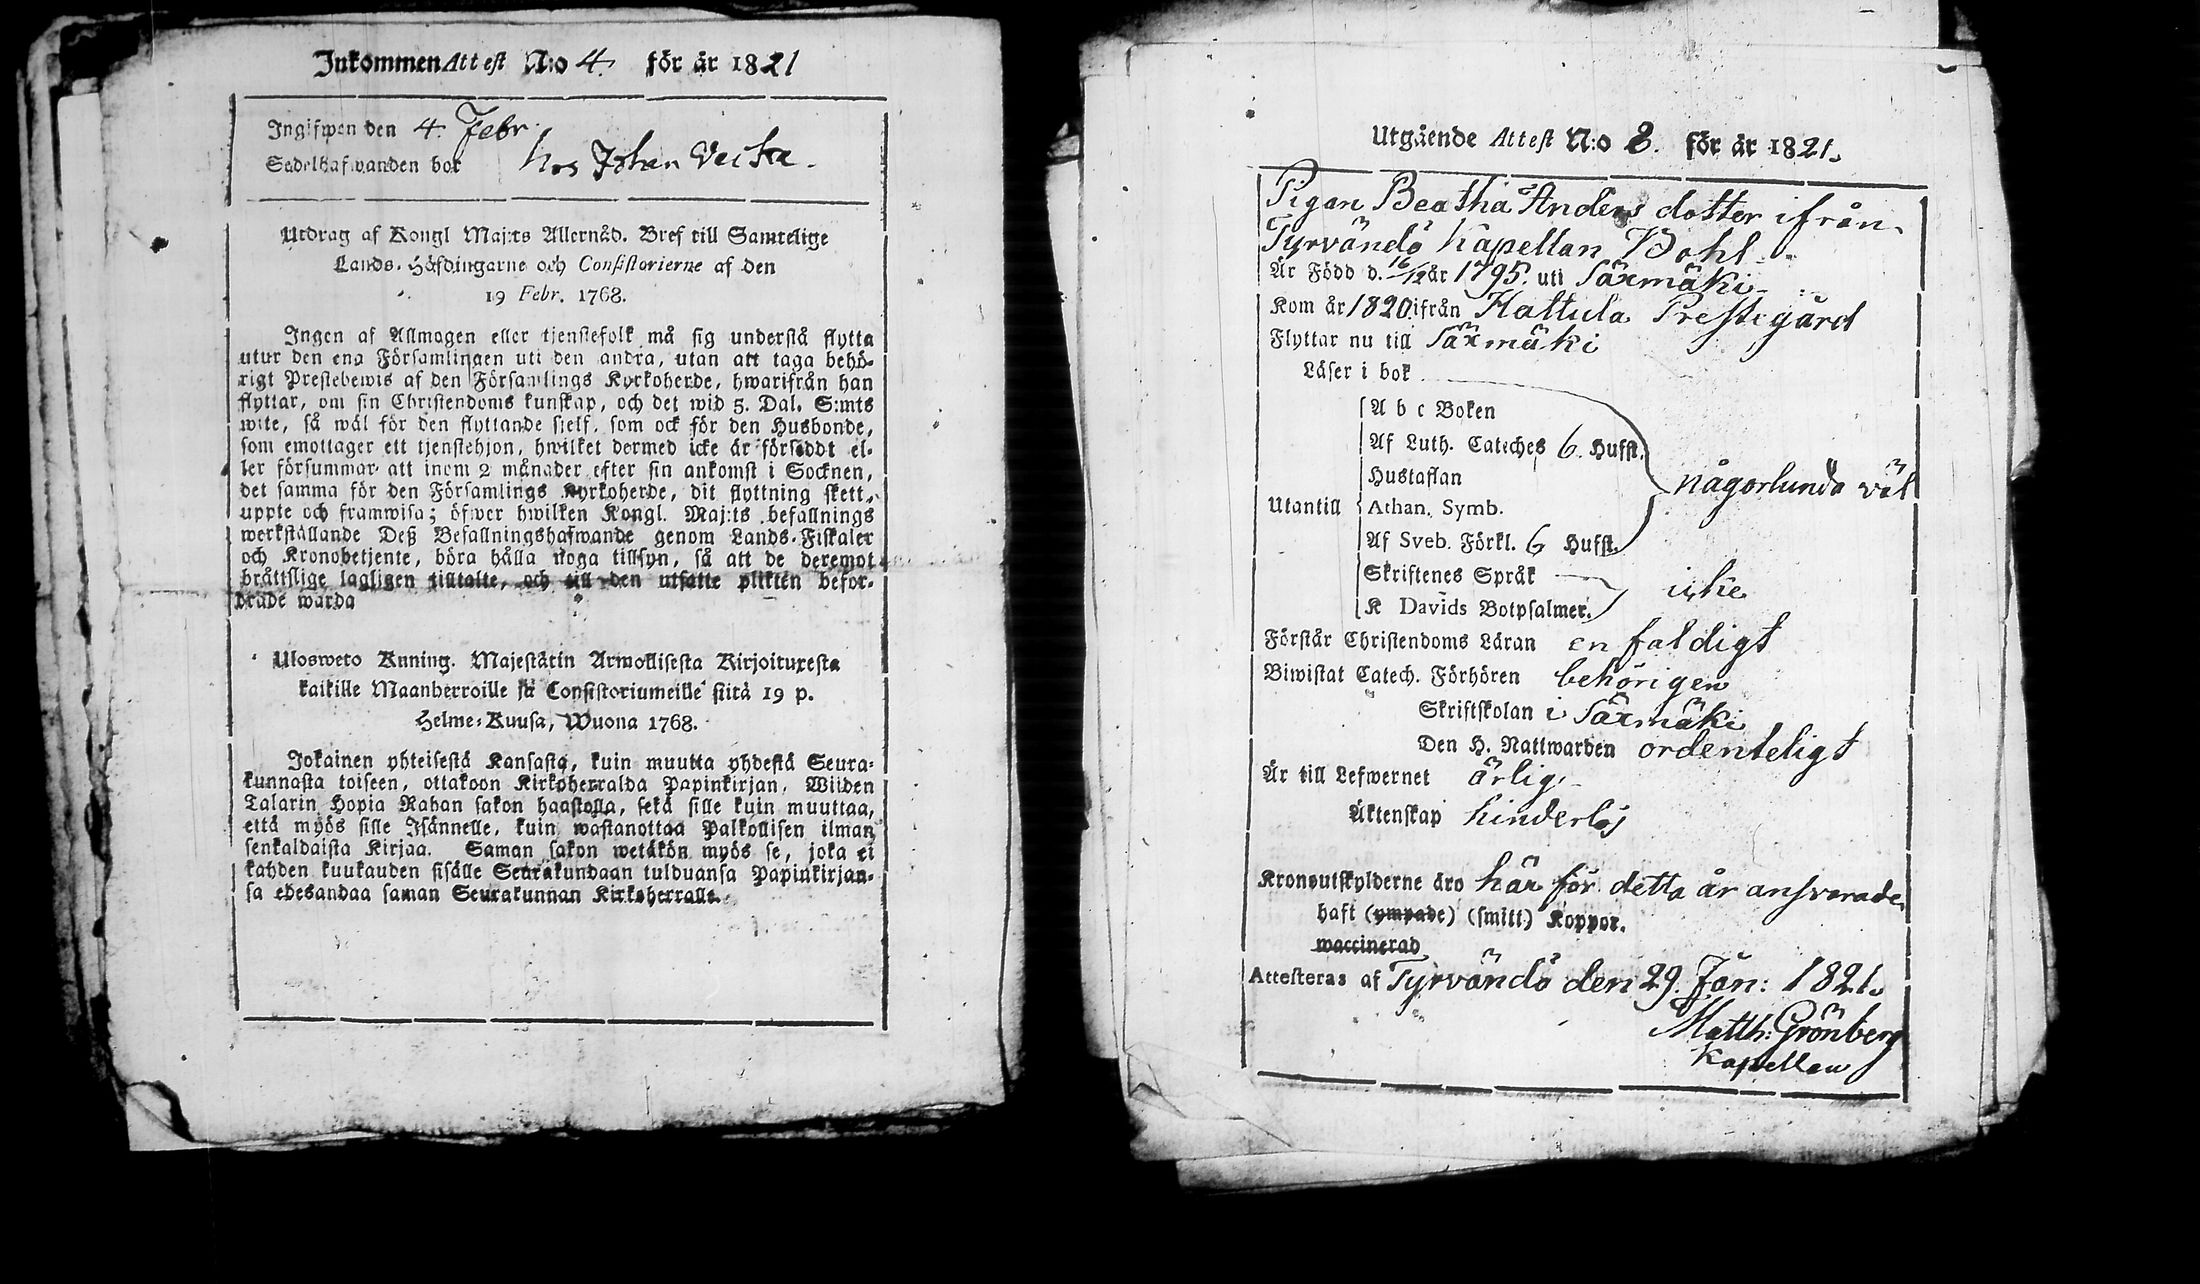 Inkommen Attest N:o 4. för år 1821
Ingifwen den 4. Febr.
Sedelhafwanden bor hos Johan
Utdrag af Kongl Maj:ts Allernåd. Bref till Samtelige
Lands-Höfdingarne och Consistorierne af den
19 Febr. 1768.
Ingen af Allmogen eller tjenstefolk må sig understå flytta
utur den ena Församlingen uti den andra, utan att taga behö-
rigt Prestebewis af den Församlings Kyrkoherde, hwarifrån han
flyttar, om sin Christendoms kunskap, och det wid 5. Dal. S:mts
wite, så wäl för den flyttande sielf, som ock för den Husbonde,
som emottager ett tjenstehjon, hwilket dermed icke är försedt el-
ler försummar att inom 2 månader efter sin ankomst i Socknen,
det samma för den Församlings Kyrkoherde, dit flyttning skett,
uppte och framwisa; öfwer hwilken Kongl. Maj:ts befallnings
werkställande Deß Befallningshafwande genom Lands-Fiskaler
och Kronobetjente, böra hålla noga tillsyn, så att de deremot
bråttslige lagligen tilltalte, och till den utsatte plikten befor-
drade warda
Ulosweto Kuning. Majestätin Armollisesta Kirjoituxesta
kaikille Maanherroille ja Consistoriumeille siitä 19 p.
Helme-Kuusa, Wuona 1768.
Jokainen yhteisestä Kansasta, kuin muutta yhdestä Seura-
kunnasta toiseen, ottakoon Kirkoherralda Papinkirjan, Wiiden
Talarin Hopia Rahan sakon haastolla, sekä sille kuin muuttaa,
että myös sille Isännelle, kuin wastanottaa Palkollisen ilman
senkaldaista Kirjaa. Saman sakon wetäkön myös se, joka ei
kahden kuukauden sisälle Seurakundaan tulduansa Papinkirjan-
sa edesandaa saman Seurakunnan Kirkoherralle.
Utgående Attest N:o 8. för år 1821.
Pigan Beatha Anders dotter ifrån
Tyrvändö Kapellan Bohl
Är Född d. 16/12 år 1795. uti Säxmäki
Kom år 1820 ifrån Hattula Prestegård
Flyttar nu till Säxmäki
Läser i bok
A b c Boken
Af Luth. Cateches 6. Hufst.
Hustaflan
någorlunda väl
Utantill Athan. Symb.
Af Sveb. Förkl. 6 Hufst.
Skriftenes Språk
icke
K Davids Botpsalmer.
Förstår Christendoms Läran enfaldigt
Biwistat Catech. Förhören behörigen
Skriftskolan i Säxmäki
Den H. Nattwarden ordenteligt
Är till Lefwernet ärlig
Äktenskap hinderlös
Kronoutskylderne äro här för detta år ansvarade.
haft (ympade) (smitt) Koppor.
waccinerad
Attesteras af Tyrvändö den 29. Jan: 1821.
Matth: Grönberg
Kapellan